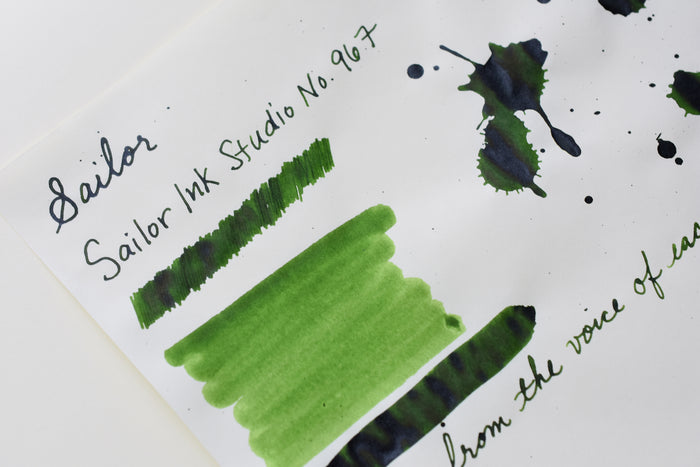 Sailor
Sailor Ink Studio No. 967
from the voice of